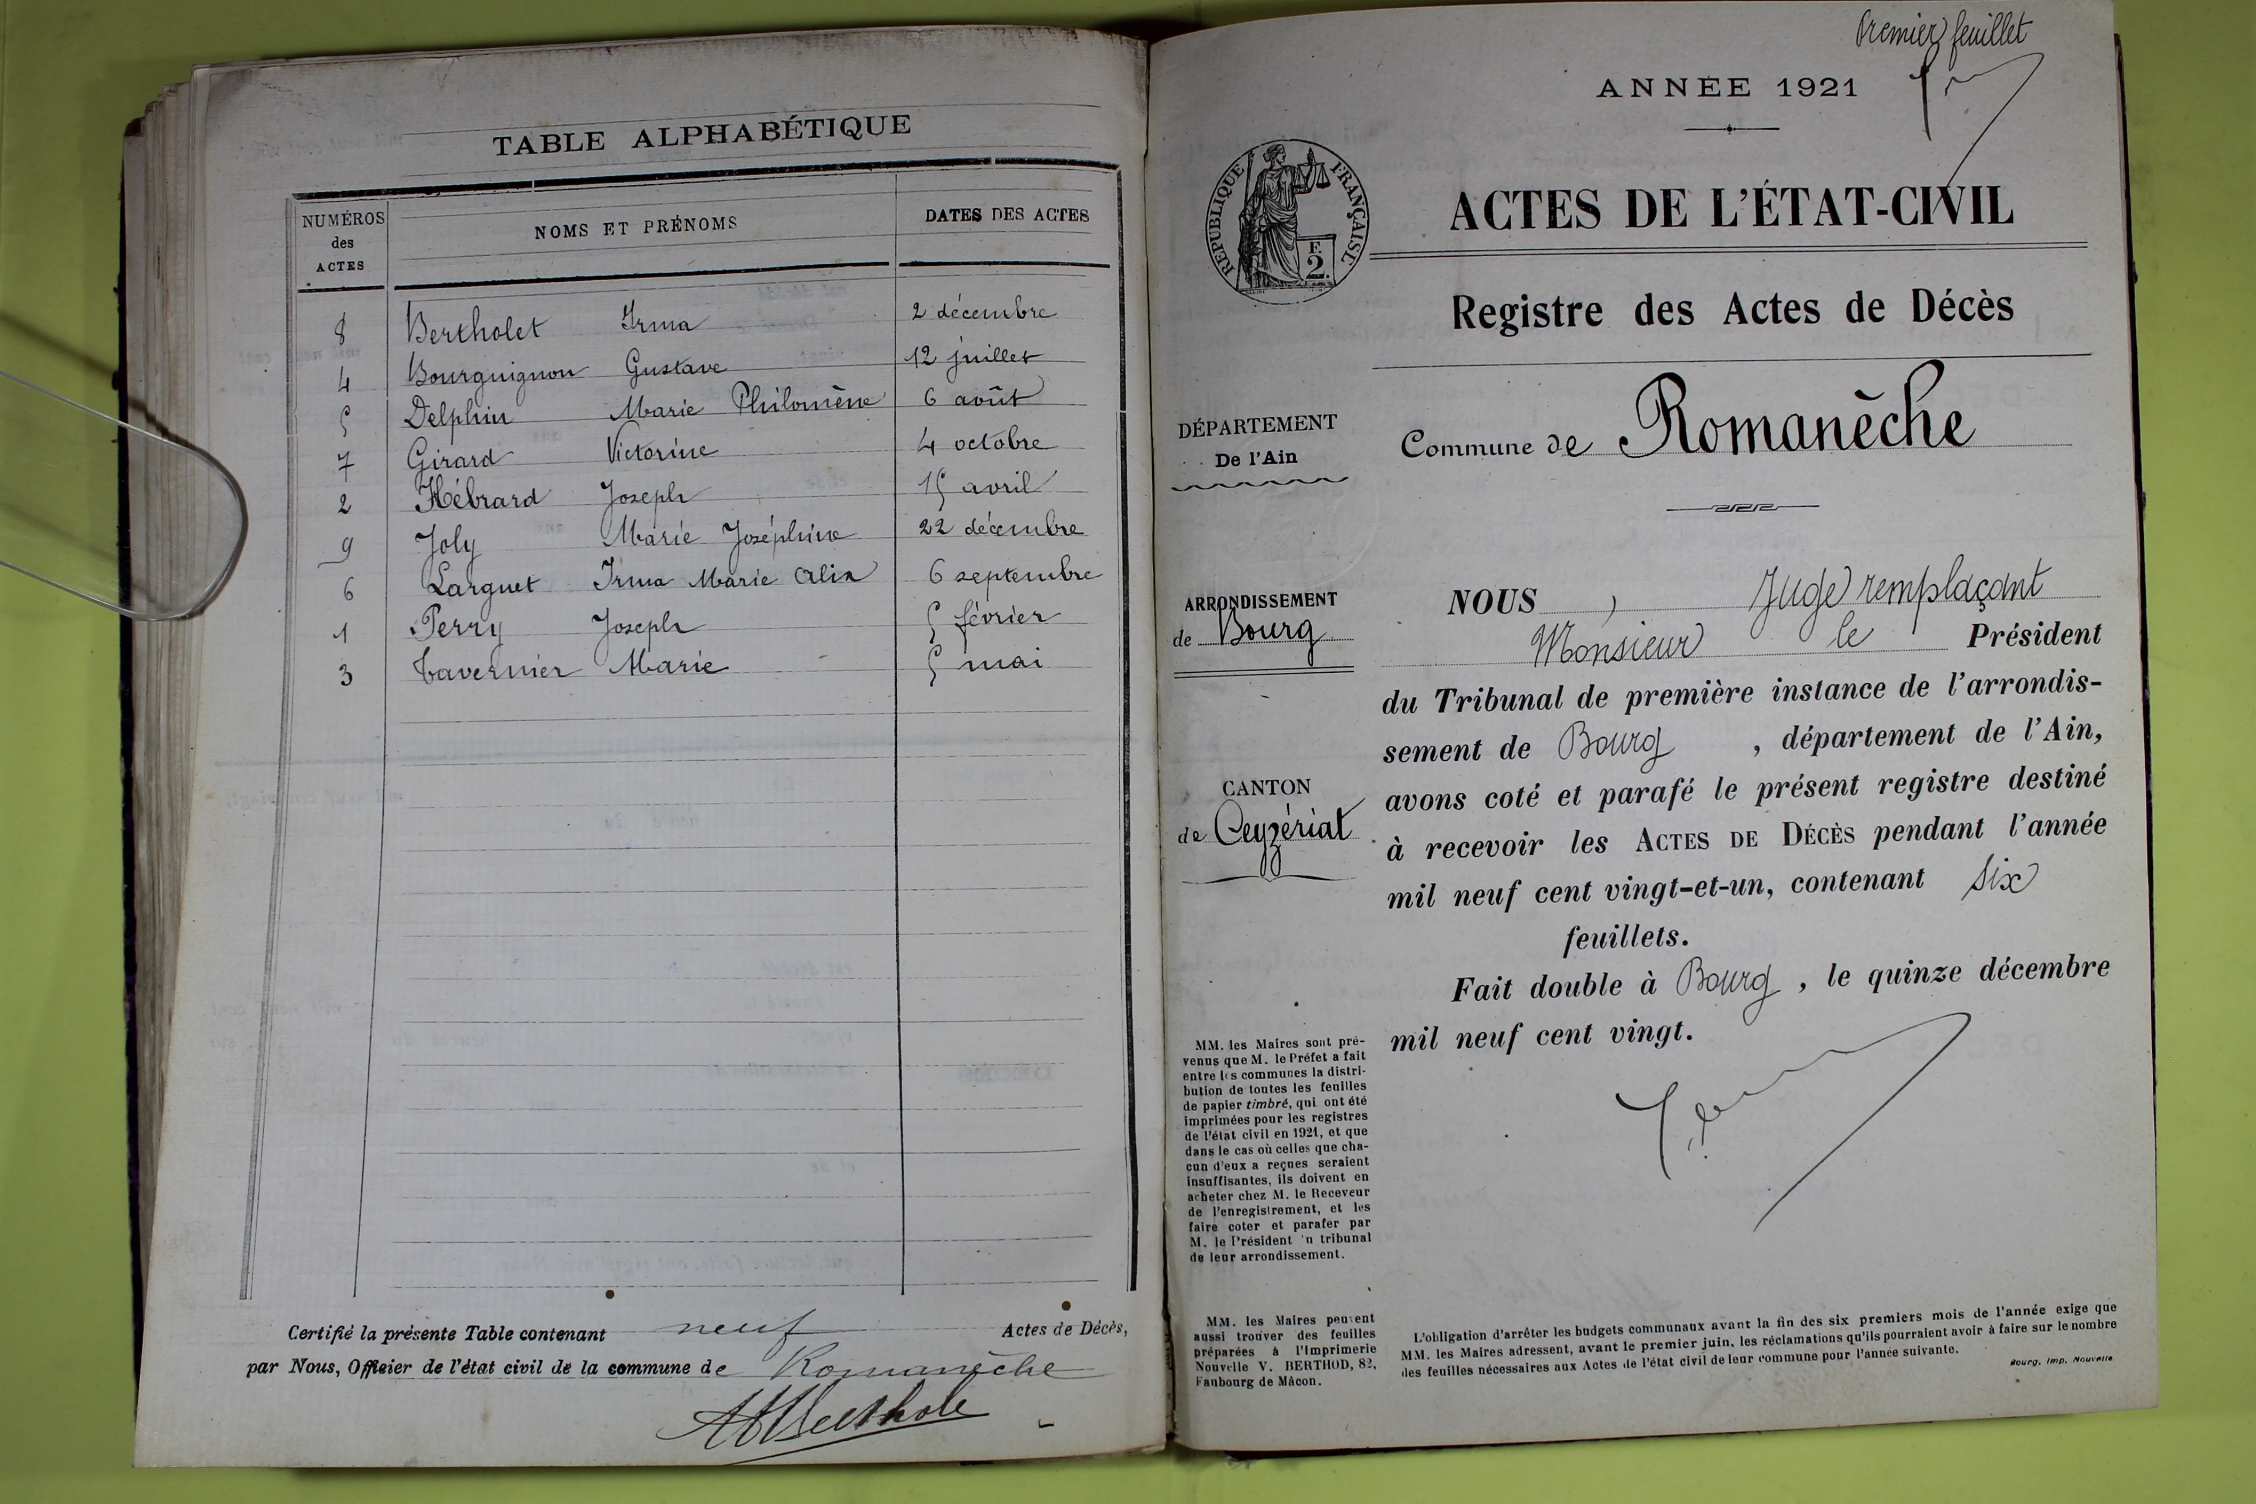 TABLE ALPHABÉTIQUE
NUMÉROS des ACTES NOMS ET PRÉNOMS DATES DES ACTES
8 Bertholet Irma 2 décembre
4 Bourguignon Gustave 12 juillet
5 Delphin Marie Philomène 6 août
7 Girard Victorine 4 octobre
2 Hébrard Joseph 15 avril
9 Joly Marie Joséphine 22 décembre
6 Larguet Irma Marie Alix 6 septembre
1 Perry Joseph 5 février
3 Tavernier Marie 5 mai
Certifié la présente Table contenant neuf Actes de Décès,
par Nous, Officier de l'état civil de la commune de Romanèche
Premier feuillet
ANNÉE 1921
RÉPUBLIQUE FRANÇAISE
F.
2.
ACTES DE L'ÉTAT-CIVIL
Registre des Actes de Décès
DÉPARTEMENT
De l'Ain
Commune de Romanèche
ARRONDISSEMENT
de Bourg
CANTON
de Ceyzériat
NOUS, Juge remplaçant
Monsieur le Président
du Tribunal de première instance de l'arrondis-
sement de Bourg, département de l'Ain,
avons coté et parafé le présent registre destiné
à recevoir les ACTES DE DÉCÈS pendant l'année
mil neuf cent vingt-et-un, contenant six
feuillets.
Fait double à Bourg, le quinze décembre
mil neuf cent vingt.
MM. les Maires sont pré-
venus que M. le Préfet a fait
entre les communes la distri-
bution de toutes les feuilles
de papier timbré, qui ont été
imprimées pour les registres
de l'état civil en 1921, et que
dans le cas où celles que cha-
cun d'eux a reçues seraient
insuffisantes, ils doivent en
acheter chez M. le Receveur
de l'enregistrement, et les
faire coter et parafer par
M. le Président 'u tribunal
de leur arrondissement.
MM. les Maires peuvent
aussi trouver des feuilles
préparées à l'Imprimerie
Nouvelle V. BERTHOD, 82,
Faubourg de Mâcon.
L'obligation d'arrêter les budgets communaux avant la fin des six premiers mois de l'année exige que
MM. les Maires adressent, avant le premier juin, les réclamations qu'ils pourraient avoir à faire sur le nombre
des feuilles nécessaires aux Actes de l'état civil de leur commune pour l'année suivante.
Bourg, Imp. Nouvelle